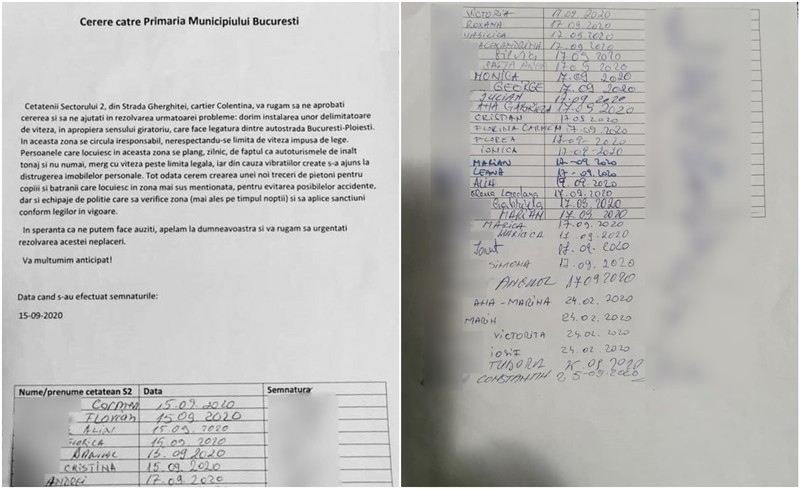 Cerere catre Primaria Municipiului Bucuresti
Cetatenii Sectorului 2, din Strada Gherghitei, cartier Colentina, va rugam sa ne aprobati
cererea si sa ne ajutati in rezolvarea urmatoarei probleme: dorim instalarea unor delimitatoare
de viteza, in apropiera sensului giratoriu, care face legatura dintre autostrada Bucuresti-Ploiesti.
In aceasta zona se circula iresponsabil, nerespectandu-se limita de viteza impusa de lege.
Persoanele care locuiesc in aceasta zona se plang, zilnic, de faptul ca autoturismele de inalt
tonaj si nu numai, merg cu viteza peste limita legala, iar din cauza vibratiilor create s-a ajuns la
distrugerea imobilelor personale. Tot odata cerem crearea unei noi treceri de pietoni pentru
copiii si batranii care locuiesc in zona mai sus mentionata, pentru evitarea posibilelor accidente,
dar si echipaje de politie care sa verifice zona (mai ales pe timpul noptii) si sa aplice sanctiuni
conform legilor in vigoare.
In speranta ca ne putem face auziti, apelam la dumneavoastra si va rugam sa urgentati
rezolvarea acestei neplaceri.
Va multumim anticipat!
Data cand s-au efectuat semnaturile:
15-09-2020
Nume/prenume cetatean S2 Data Semnatura
Carmen 15.09.2020
Florian 15 09 2020
ALIN 15.09.2020
FLORICA 15.09.2020
15.09.2020
CRISTINA 15.09.2020
ANDREI 17.09.2020
VICTORIA 17.09.2020
ROXANA 17 09 2020
VASILICA 17.09.2020
ALEXANDRINA 17.09.2020
Silvia 17.09.2020
17.09 2020
MONICA 17.09.2020
GEORGE 17.09.2020
IULIAN 17.09.2020
ANA GABRIELA 17.09.2020
CRISTIAN 17.09.2020
FLORINA CARMEN 17.09.2020
FLOREA 17.09.2020
IONICA 17.09.2020
MARIAN 17-09.2020
LEANA 17-09.2020
ALIN 17.09.2020
Elena Loredana 17.09.2020
Gabriela 17.09.2020
MARIAN 17.09.2020
MARICA 17.09.2020
17.09.2020
Ionut 17.09.2020
SIMONA 17.09.2020
ANGHEL 17 09 2020
ANA-MARINA 24.02.2020
MARIN 24.02.2020
VICTORITA 24.02.2020
IOSIF 24.02.2020
TUDORA 25.09.2020
CONSTANTIN 25-09-2020